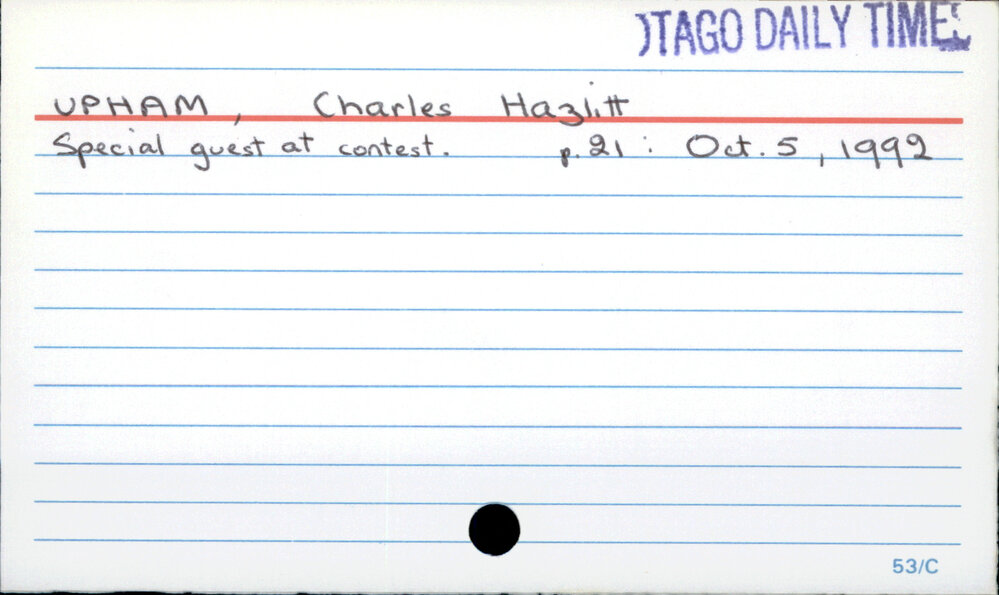 OTAGO DAILY TIMES
UPHAM, Charles Hazlitt
Special guest at contest. p. 21 : Oct. 5, 1992
53/C